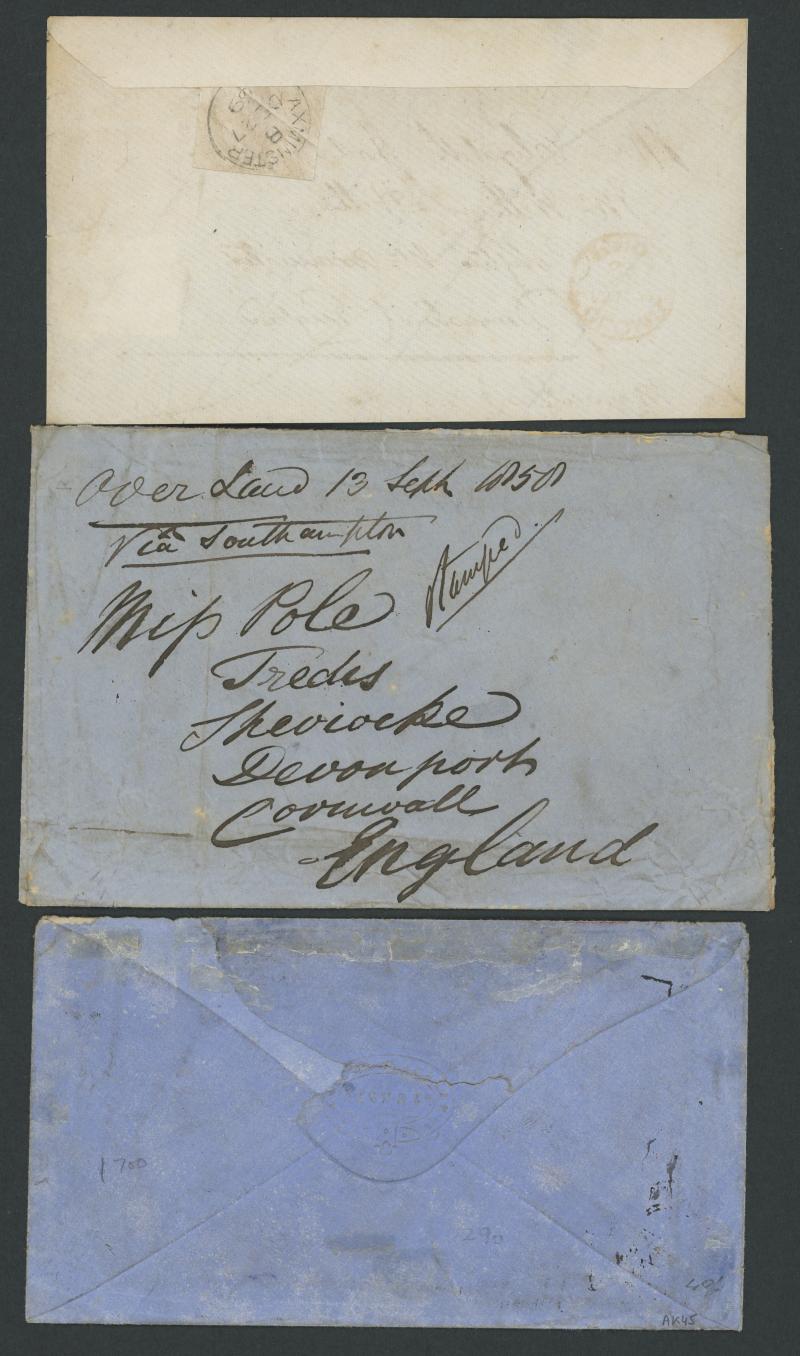 AXMINSTER
Over Land 13 Sept 1858
Via Southampton
Stamped.
Miss Pole
Tredis
Sheviocke
Devonport
Cornwall
England
1700
290
AK45